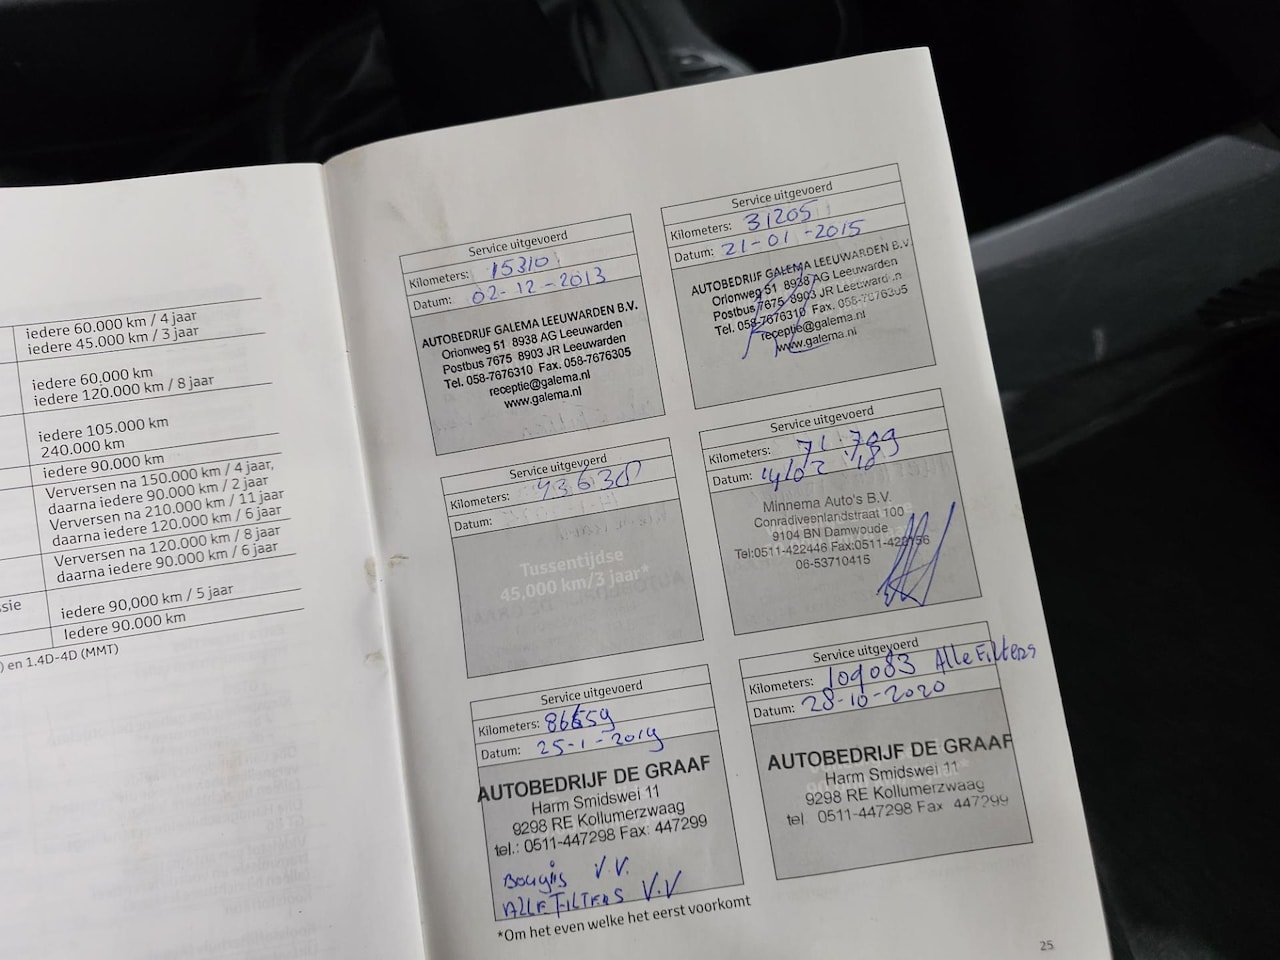 iedere 60.000 km / 4 jaar
iedere 45.000 km / 3 jaar
iedere 60.000 km
iedere 120.000 km / 8 jaar
iedere 105.000 km
240.000 km
iedere 90.000 km
Verversen na 150.000 km / 4 jaar,
daarna iedere 90.000 km / 2 jaar
Verversen na 210.000 km / 11 jaar
daarna iedere 120.000 km / 6 jaar
Verversen na 120.000 km / 8 jaar
daarna iedere 90.000 km / 6 jaar
ssie
iedere 90,000 km / 5 jaar
Iedere 90.000 km
) en 1.4D-4D (MMT)
Service uitgevoerd
Kilometers: 15310
Datum: 02-12-2013
AUTOBEDRIJF GALEMA LEEUWARDEN B.V.
Orionweg 51 8938 AG Leeuwarden
Postbus 7675 8903 JR Leeuwarden
Tel. 058-7676310 Fax. 058-7676305
receptie@galema.nl
www.galema.nl
Service uitgevoerd
Kilometers: 31205
Datum: 21-01-2015
AUTOBEDRIJF GALEMA LEEUWARDEN B.V.
Orionweg 51 8938 AG Leeuwarden
Postbus 7675 8903 JR Leeuwarden
Tel. 058-7676310 Fax. 058-7676305
receptie@galema.nl
www.galema.nl
Service uitgevoerd
Kilometers:
Datum:
Tussentijdse
45,000 km/3 jaar*
Service uitgevoerd
Kilometers: 71.789
Datum:
Minnema Auto's B.V.
Conradiveenlandstraat 100
9104 BN Damwoude
Tel:0511-422446 Fax:0511-422156
06-53710415
Service uitgevoerd
Kilometers: 86659
Datum: 25-1-2019
AUTOBEDRIJF DE GRAAF
Harm Smidswei 11
9298 RE Kollumerzwaag
tel.: 0511-447298 Fax: 447299
Bougijs V.V.
ALLE FILTERS V.V
Service uitgevoerd
Kilometers: 109083 Alle Filters
Datum: 28-10-2020
AUTOBEDRIJF DE GRAAF
Harm Smidswei 11
9298 RE Kollumerzwaag
tel. 0511-447298 Fax 447299
*Om het even welke het eerst voorkomt
25